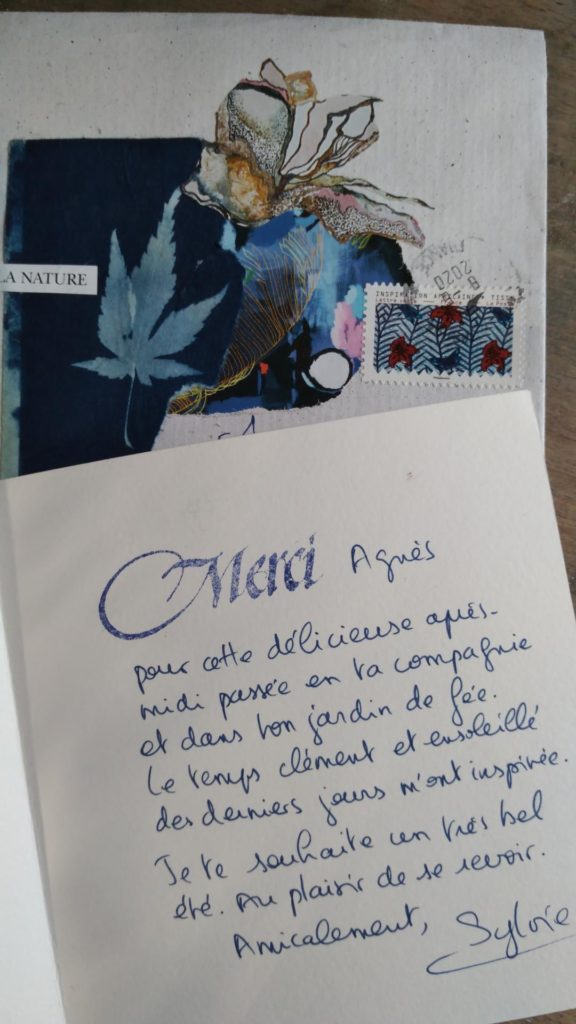 LA NATURE
2020
INSPIRATION AFRICAINE TISS
Lettre
La Po
Merci Agnès
pour cette délicieuse après-
midi passée en ta compagnie
et dans ton jardin de fée.
Le temps clément et ensoleillé
des derniers jours m'ont inspirée.
Je te souhaite un très bel
été. Au plaisir de se revoir.
Amicalement, Sylvie